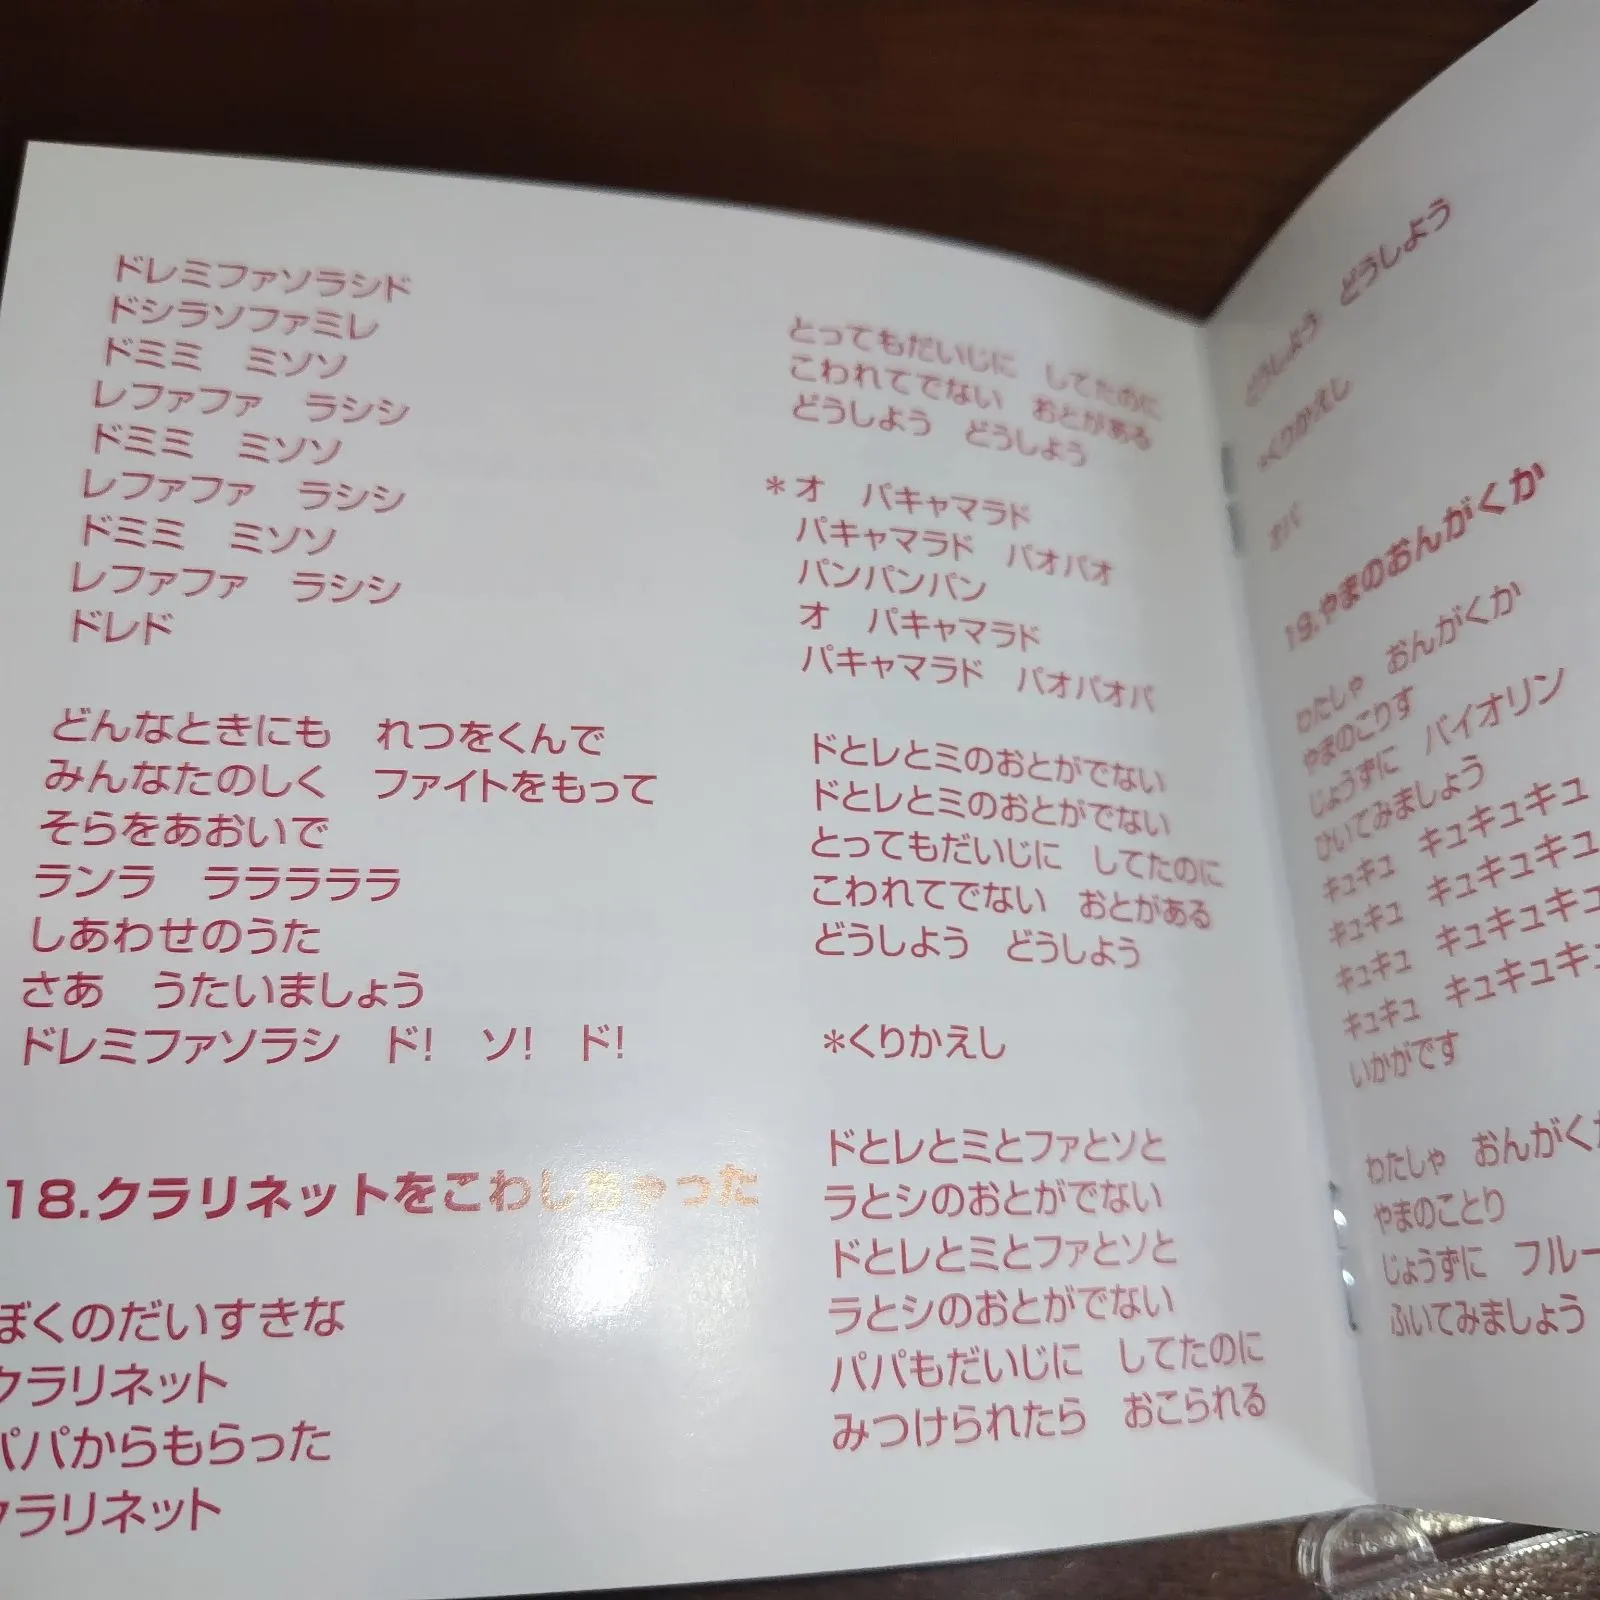 ドレミファソラシド
ドシラソファミレ
ドミミ　ミソソ
レファファ　ラシシ
ドミミ　ミソソ
レファファ　ラシシ
ドミミ　ミソソ
レファファ　ラシシ
ドレド
どんなときにも　れつをくんで
みんなたのしく　ファイトをもって
そらをあおいで
ランラ　ラララララ
しあわせのうた
さあ　うたいましょう
ドレミファソラシ　ド!　ソ!　ド!
18.クラリネットをこわしちゃった
ぼくのだいすきな
クラリネット
パパからもらった
クラリネット
とってもだいじに　してたのに
こわれてでない　おとがある
どうしよう　どうしよう
*オ　パキャマラド
パキャマラド　パオパオ
パンパンパン
オ　パキャマラド
パキャマラド　パオパオパ
ドとレとミのおとがでない
ドとレとミのおとがでない
とってもだいじに　してたのに
こわれてでない　おとがある
どうしよう　どうしよう
*くりかえし
ドとレとミとファとソと
ラとシのおとがでない
ドとレとミとファとソと
ラとシのおとがでない
パパもだいじに　してたのに
みつけられたら　おこられる
どうしよう　どうしよう
*くりかえし
オパ
19.やまのおんがくか
わたしゃ　おんがくか
やまのこりす
じょうずに　バイオリン
ひいてみましょう
キュキュ　キュキュキュ
キュキュ　キュキュキュ
キュキュ　キュキュキュ
キュキュ　キュキュキュ
いかがです
わたしゃ　おんがくか
やまのことり
じょうずに　フルー
ふいてみましょう